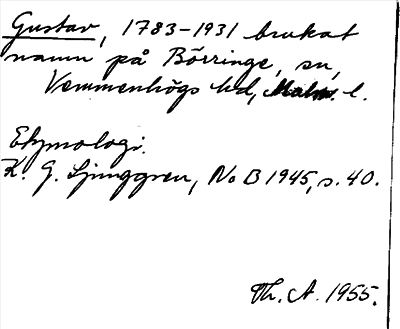 Gustav, 1783-1931 brukat
namn på Börringe, sn,
Vemmenhögs hd, Malm. l.
Etymologi.
K. G. Ljunggren, No B 1945, s. 40.
Th. A. 1955.